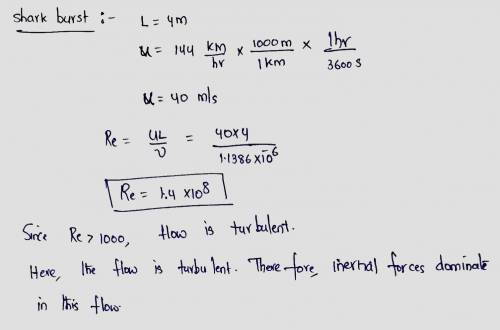 shark burst :- L = 4m
u = 144 km/hr × 1000m/1km × 1hr/3600s
u = 40 m/s
Re = uL/υ = 40×4/1.1386×10⁻⁶
Re = 1.4 ×10⁸
Since Re > 1000, flow is turbulent.
Here, the flow is turbulent. Therefore, inertial forces dominate
in this flow.